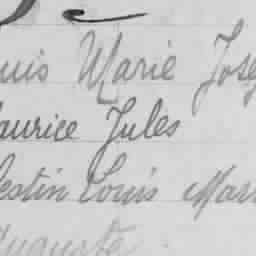 uis Marie Jose
aurice Jules
estin Louis Mar
Auguste